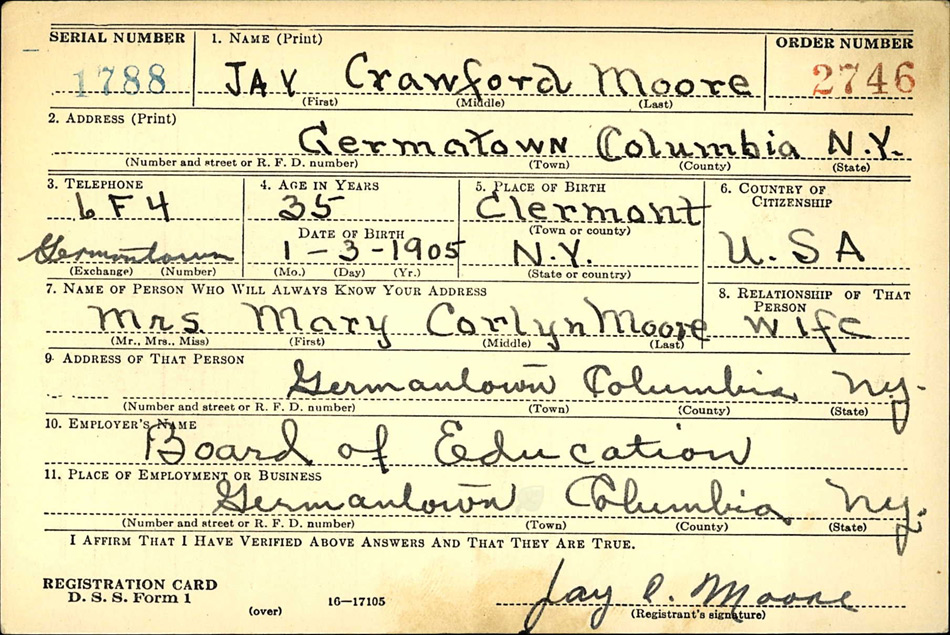 SERIAL NUMBER 1. NAME (Print) ORDER NUMBER
1788 JAY Crawford Moore 2746
(First) (Middle) (Last)
2. ADDRESS (Print)
Germatown Columbia N.Y.
(Number and street or R. F. D. number) (Town) (County) (State)
3. TELEPHONE 4. AGE IN YEARS 5. PLACE OF BIRTH 6. COUNTRY OF CITIZENSHIP
6F4 35 Clermont
(Town or county)
DATE OF BIRTH
Germantown 1-3-1905 N.Y. U.S A
(Exchange) (Number) (Mo.) (Day) (Yr.) (State or country)
7. NAME OF PERSON WHO WILL ALWAYS KNOW YOUR ADDRESS 8. RELATIONSHIP OF THAT PERSON
Mrs. Mary Corlyn Moore wife
(Mr., Mrs., Miss) (First) (Middle) (Last)
9. ADDRESS OF THAT PERSON
Germantown Columbia Ny.
(Number and street or R. F. D. number) (Town) (County) (State)
10. EMPLOYER'S NAME
Board of Education
11. PLACE OF EMPLOYMENT OR BUSINESS
Germantown Columbia Ny.
(Number and street or R. F. D. number) (Town) (County) (State)
I AFFIRM THAT I HAVE VERIFIED ABOVE ANSWERS AND THAT THEY ARE TRUE.
REGISTRATION CARD
D. S. S. Form 1 (over) 16-17105 Jay C. Moore
(Registrant's signature)